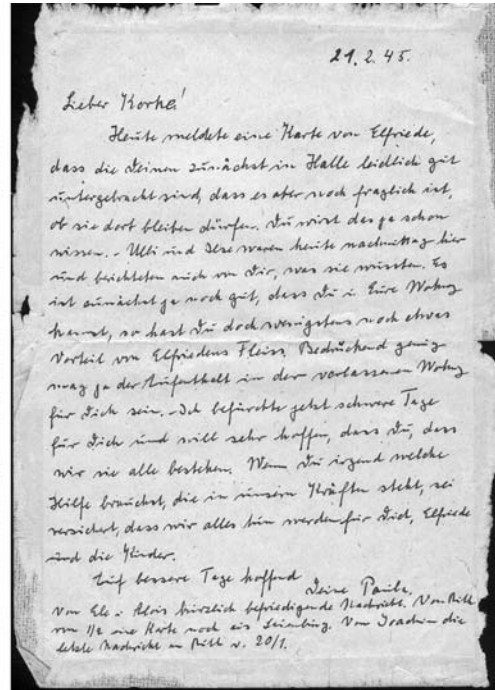 21. 2. 45.
Lieber Korke!
Heute meldete eine Karte von Elfriede,
dass die Deinen zunächst in Halle leidlich gut
untergebracht sind, dass es aber noch fraglich ist,
ob sie dort bleiben dürfen. Du wirst das ja schon
wissen. - Ulli und Ilse waren heute nachmittag hier
und berichteten auch von Dir, was sie wussten. Es
ist zunächst ja noch gut, dass Du in Eure Wohng
kannst, so hast Du doch wenigstens noch etwas
Vorteil von Elfriedens Fleiss. Bedrückend genug
mag ja der Aufenthalt in der verlassenen Wohng
für Dich sein. - Ich befürchte jetzt schwere Tage
für Dich und will sehr hoffen, dass Du, dass
wir sie alle bestehen. Wenn Du irgend welche
Hilfe brauchst, die in unsern Kräften steht, sei
versichert, dass wir alles tun werden für Dich, Elfriede
und die Kinder.
Auf bessere Tage hoffend
Deine
Von Ele u. Alois kürzlich befriedigende Nachricht. Von
vom eine Karte noch aus. Von Joachim die
letzte Nachricht an v. 20/1.